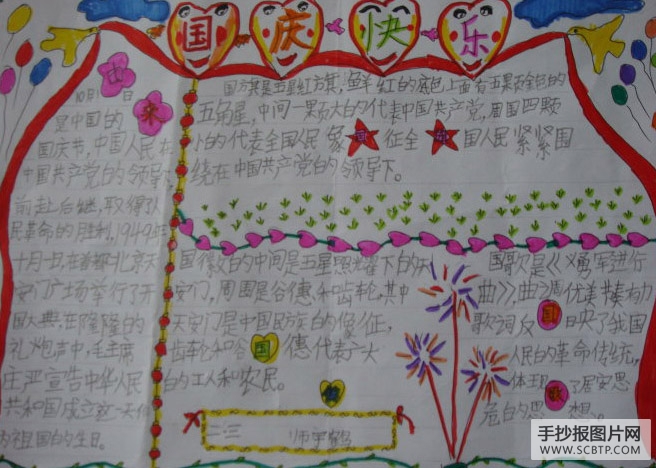 国庆快乐
由来
10月1日
是中国的
国庆节,中国人民在
中国共产党的领导下
前赴后继,取得了人
民革命的胜利.1949年
十月一日在首都北京天
安门广场举行了开
国大典,在隆隆的
礼炮声中,毛主席
庄严宣告中华人民
共和国成立
为祖国的生日。
国旗是五星红旗,鲜红的底色上面有五颗金色的
五角星,中间一颗大的代表中国共产党,周围四颗
小的代表全国人民 象 征全 国人民紧紧围
绕在中国共产党的领导下。
国徽的中间是五星照耀下的天
安门,周围是谷穗和齿轮,其中
天安门是中国民族的象征,
齿轮和谷 国 穗代表广大
的工人和农民。
国歌是《义勇军进行
曲》,曲调优美节奏有力
歌词反 国 映了我国
人民的革命传统,
体现 歌 了居安思
危的思想。
手抄报图片网
WWW.SCBTP.COM